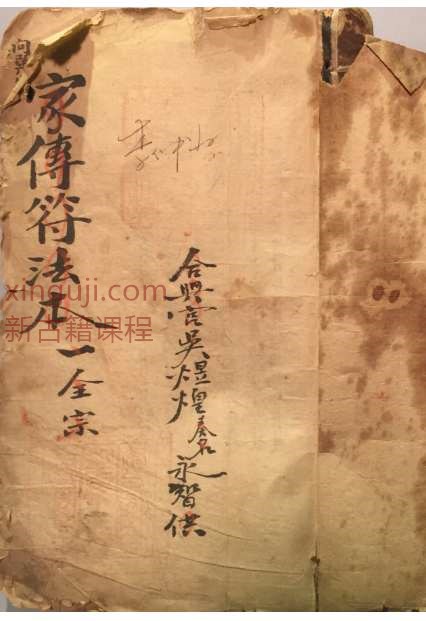 家傳符法本一全宗
合興宮吳煜煌奏名永智供
xinguji.com
新古籍课程